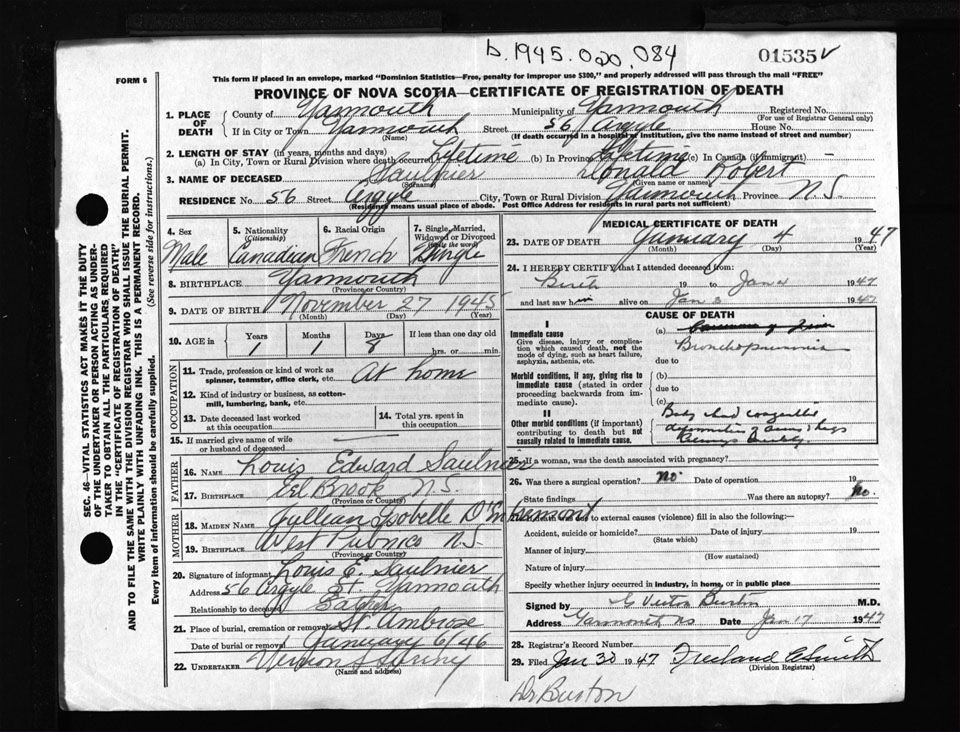 b. 1945. 020. 084
01535 V
FORM 6
This form if placed in an envelope, marked "Dominion Statistics—Free, penalty for improper use $300," and properly addressed will pass through the mail "FREE"
PROVINCE OF NOVA SCOTIA—CERTIFICATE OF REGISTRATION OF DEATH
SEC. 46—VITAL STATISTICS ACT MAKES IT THE DUTY
OF THE UNDERTAKER OR PERSON ACTING AS UNDER-
TAKER TO OBTAIN ALL THE PARTICULARS REQUIRED
IN THE "CERTIFICATE OF REGISTRATION OF DEATH"
AND TO FILE THE SAME WITH THE DIVISION REGISTRAR WHO SHALL ISSUE THE BURIAL PERMIT.
WRITE PLAINLY WITH UNFADING INK. THIS IS A PERMANENT RECORD.
Every item of information should be carefully supplied. (See reverse side for instructions.)
1. PLACE OF DEATH County of Yarmouth Municipality of Yarmouth Registered No.
(For use of Registrar General only)
If in City or Town Yarmouth Street 56 Argyle House No.
(Name) (If death occurred in a hospital or institution, give the name instead of street and number)
2. LENGTH OF STAY (in years, months and days)
(a) In City, Town or Rural Division where death occurred Lifetime (b) In Province Lifetime (c) In Canada (if immigrant) —
3. NAME OF DECEASED Saulnier Donald Robert
(Surname) (Given name or names)
RESIDENCE No. 56 Street Argyle City, Town or Rural Division Yarmouth Province N.S
(Residence means usual place of abode. Post Office Address for residents in rural parts not sufficient)
4. Sex Male
5. Nationality (Citizenship) Canadian
6. Racial Origin French
7. Single, Married, Widowed or Divorced (write the word) Single
8. BIRTHPLACE Yarmouth
(Province or Country)
9. DATE OF BIRTH November 27 1945
(Month) (Day) (Year)
10. AGE in Years 1 Months 1 Days 8 If less than one day old
hrs. or min.
OCCUPATION
11. Trade, profession or kind of work as spinner, teamster, office clerk, etc. At home
12. Kind of industry or business, as cotton-mill, lumbering, bank, etc.
13. Date deceased last worked at this occupation
14. Total yrs. spent in this occupation
15. If married give name of wife or husband of deceased —
FATHER
16. NAME Louis Edward Saulnier
17. BIRTHPLACE Eel Brook N.S
(Province or Country)
MOTHER
18. MAIDEN NAME Jullian Isobelle D'Entremont
19. BIRTHPLACE West Pubnico N.S
(Province or Country)
20. Signature of informant Louis E. Saulnier
Address 56 Argyle St. Yarmouth
Relationship to deceased Father
21. Place of burial, cremation or removal St. Ambrose
Date of burial or removal January 6/46
22. UNDERTAKER
(Name and address)
MEDICAL CERTIFICATE OF DEATH
23. DATE OF DEATH January 4 1947
(Month) (Day) (Year)
24. I HEREBY CERTIFY that I attended deceased from
Birth 19 to Jan 4 1947
and last saw him alive on Jan 3 1947
CAUSE OF DEATH
I
Immediate cause
Give disease, injury or complication which caused death, not the mode of dying, such as heart failure, asphyxia, asthenia, etc.
(a) Bronchopneumonia
due to
Morbid conditions, if any, giving rise to immediate cause (stated in order proceeding backwards from immediate cause).
(b)
due to
(c)
II
Other morbid conditions (if important) contributing to death but not causally related to immediate cause.
Baby had congenital
deformities of arms & legs
25. If a woman, was the death associated with pregnancy?
26. Was there a surgical operation? No Date of operation 19
State findings Was there an autopsy? No.
27. If death was due to external causes (violence) fill in also the following:—
Accident, suicide or homicide? Date of injury 19
(State which)
Manner of injury
(How sustained)
Nature of injury
Specify whether injury occurred in industry, in home, or in public place
Signed by G Victor Burton M.D.
Address Yarmouth NS Date Jan 17 1947
28. Registrar's Record Number
29. Filed Jan 30 1947
(Division Registrar)
Dr Burton